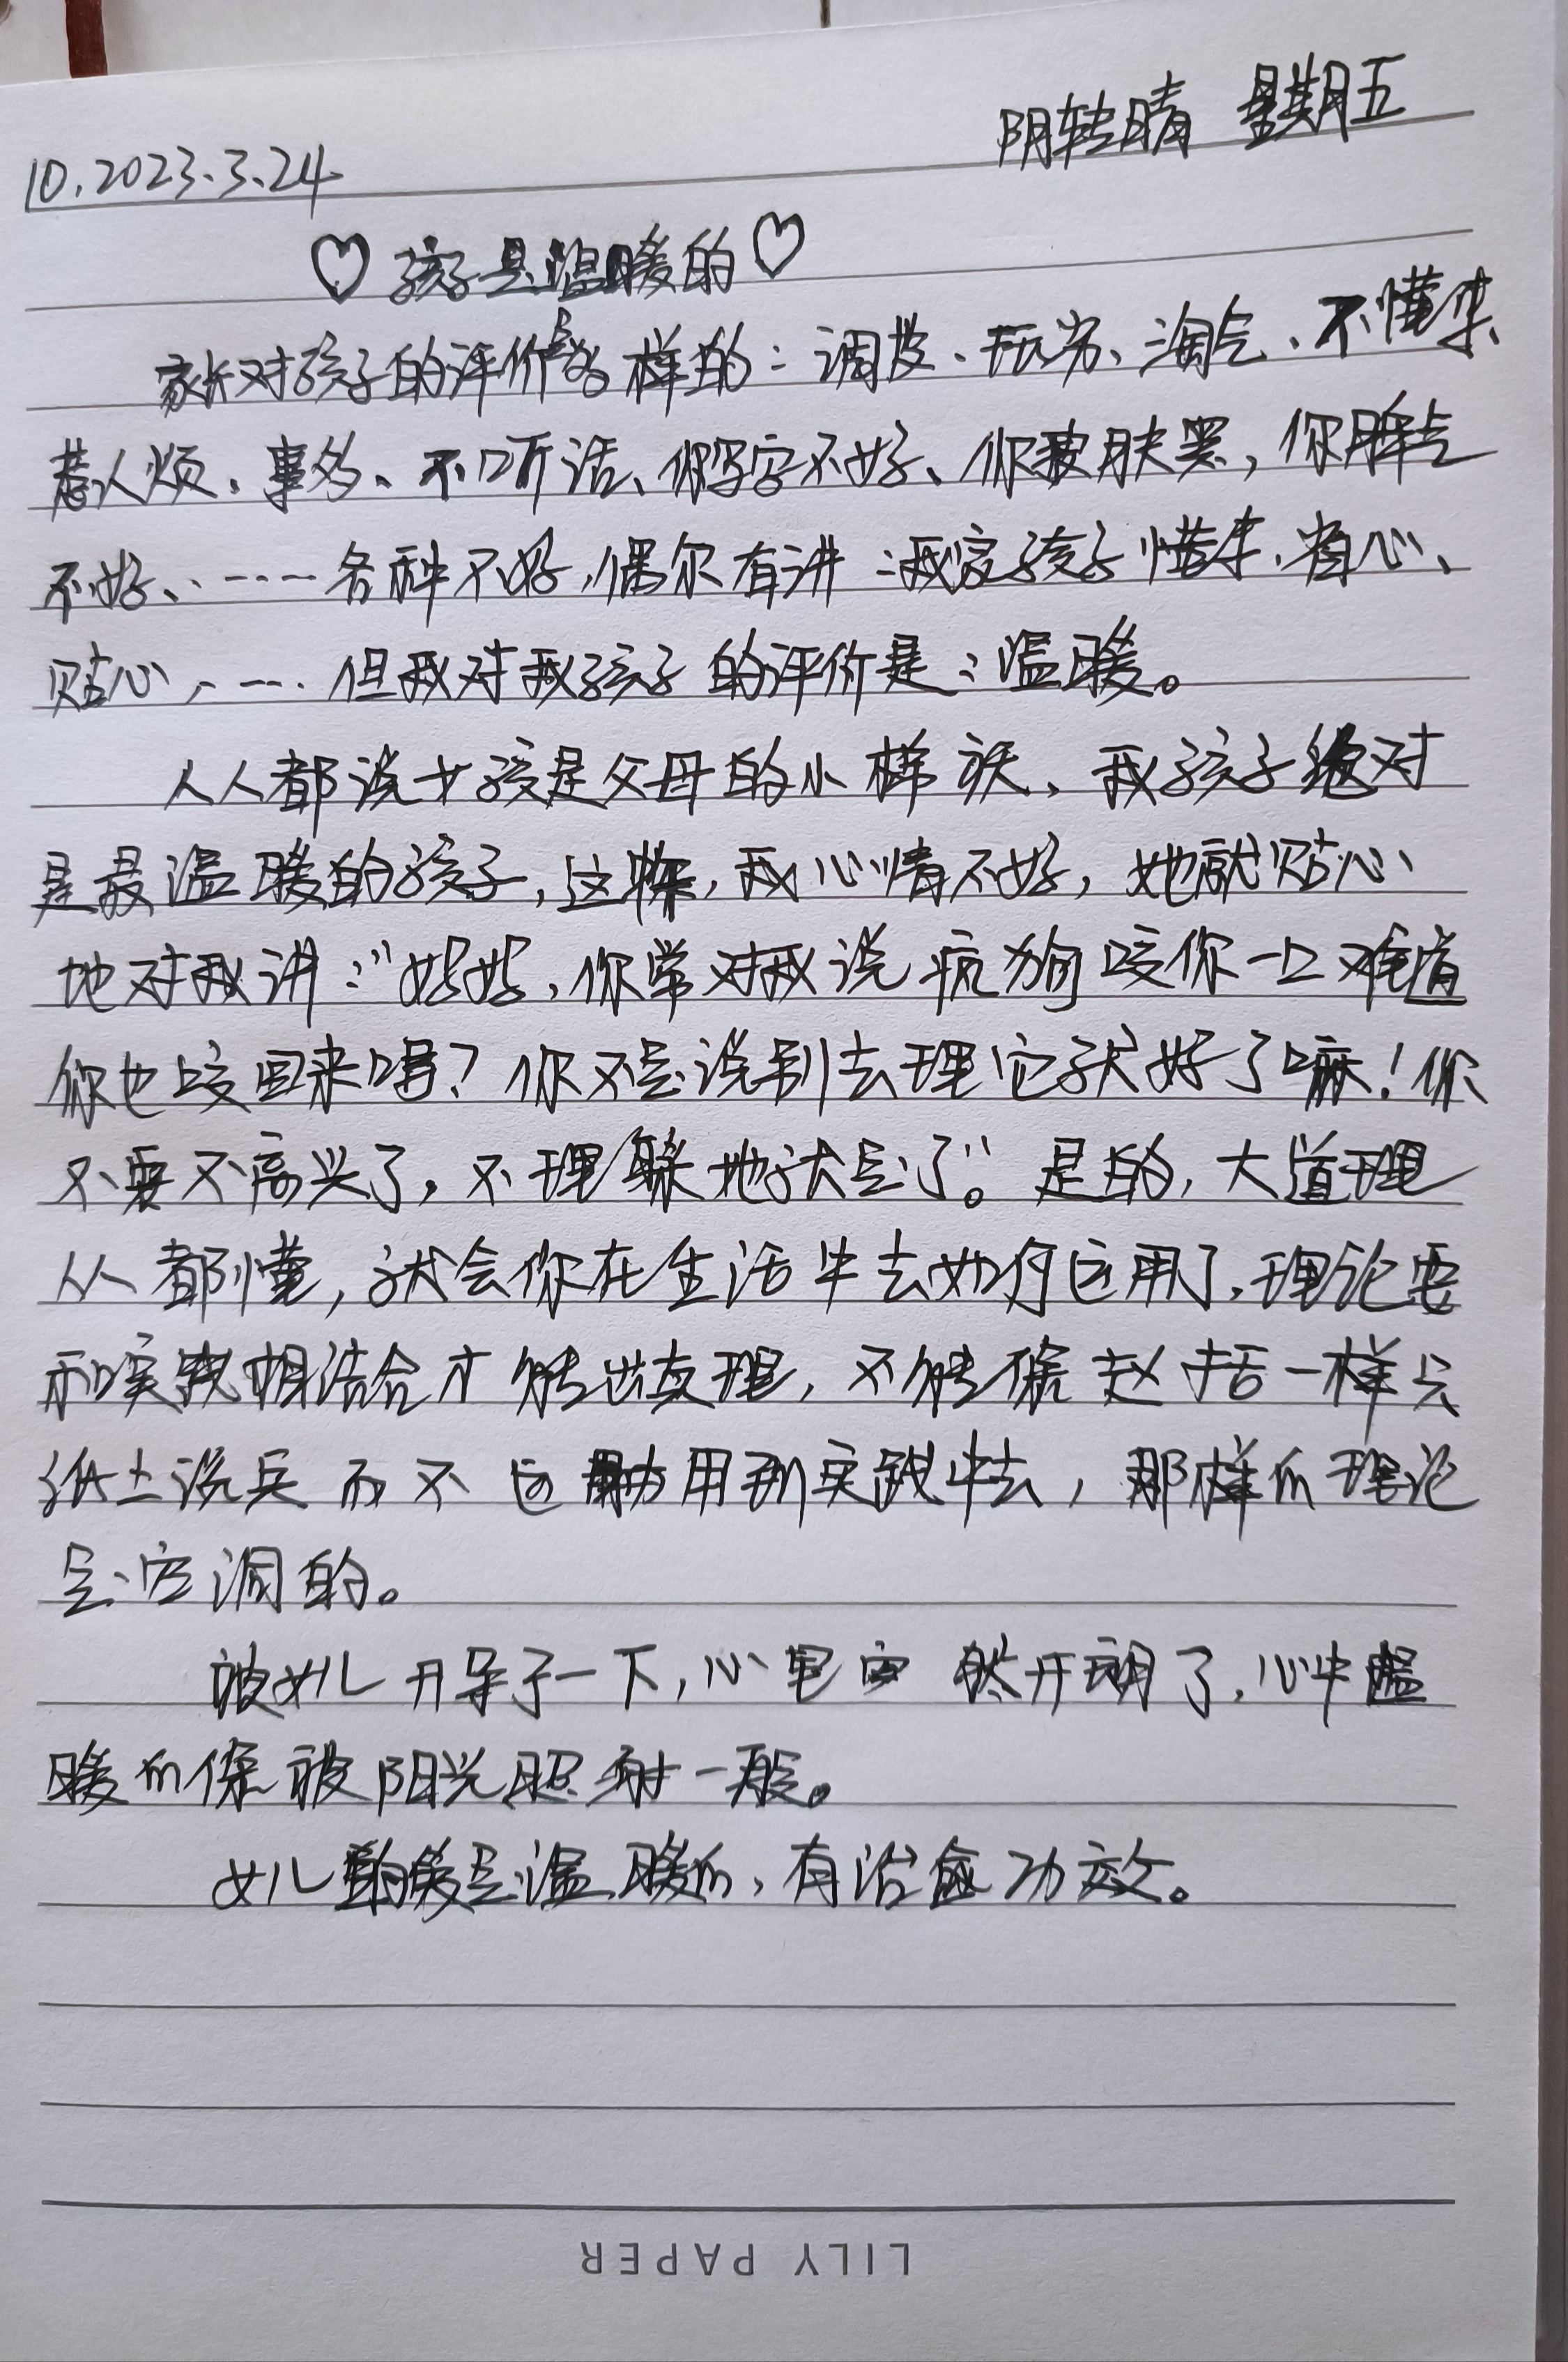 阴转晴 星期五
10.2023.3.24
♡孩子是温暖的♡
家长对孩子的评价是各样的：调皮、玩劣、淘气、不懂事、
惹人烦、事多、不听话、你写字不好、你皮肤黑，你脾气
不好、……各种不好，偶尔有讲：我家孩子懂事、省心、
贴心，…… 但我对我孩子的评价是：温暖。
人人都说女孩是父母的小棉袄，我孩子绝对
是最温暖的孩子，这不，我心情不好，她就贴心
地对我讲：“妈妈，你常对我说疯狗咬你一口难道
你也咬回来吗？你不是说别去理它就好了嘛！你
不要不高兴了，不理睬他就是了”。是的，大道理
人人都懂，就会你在生活中去如何运用了，理论要
和实践相结合才能出真理，不能像赵括一样只
纸上谈兵而不运用到实践中去，那样的理论
是空洞的。
被女儿开导了一下，心里豁然开朗了，心中温
暖的像被阳光照射一般。
女儿的笑是温暖的，有治愈功效。
LILY PAPER